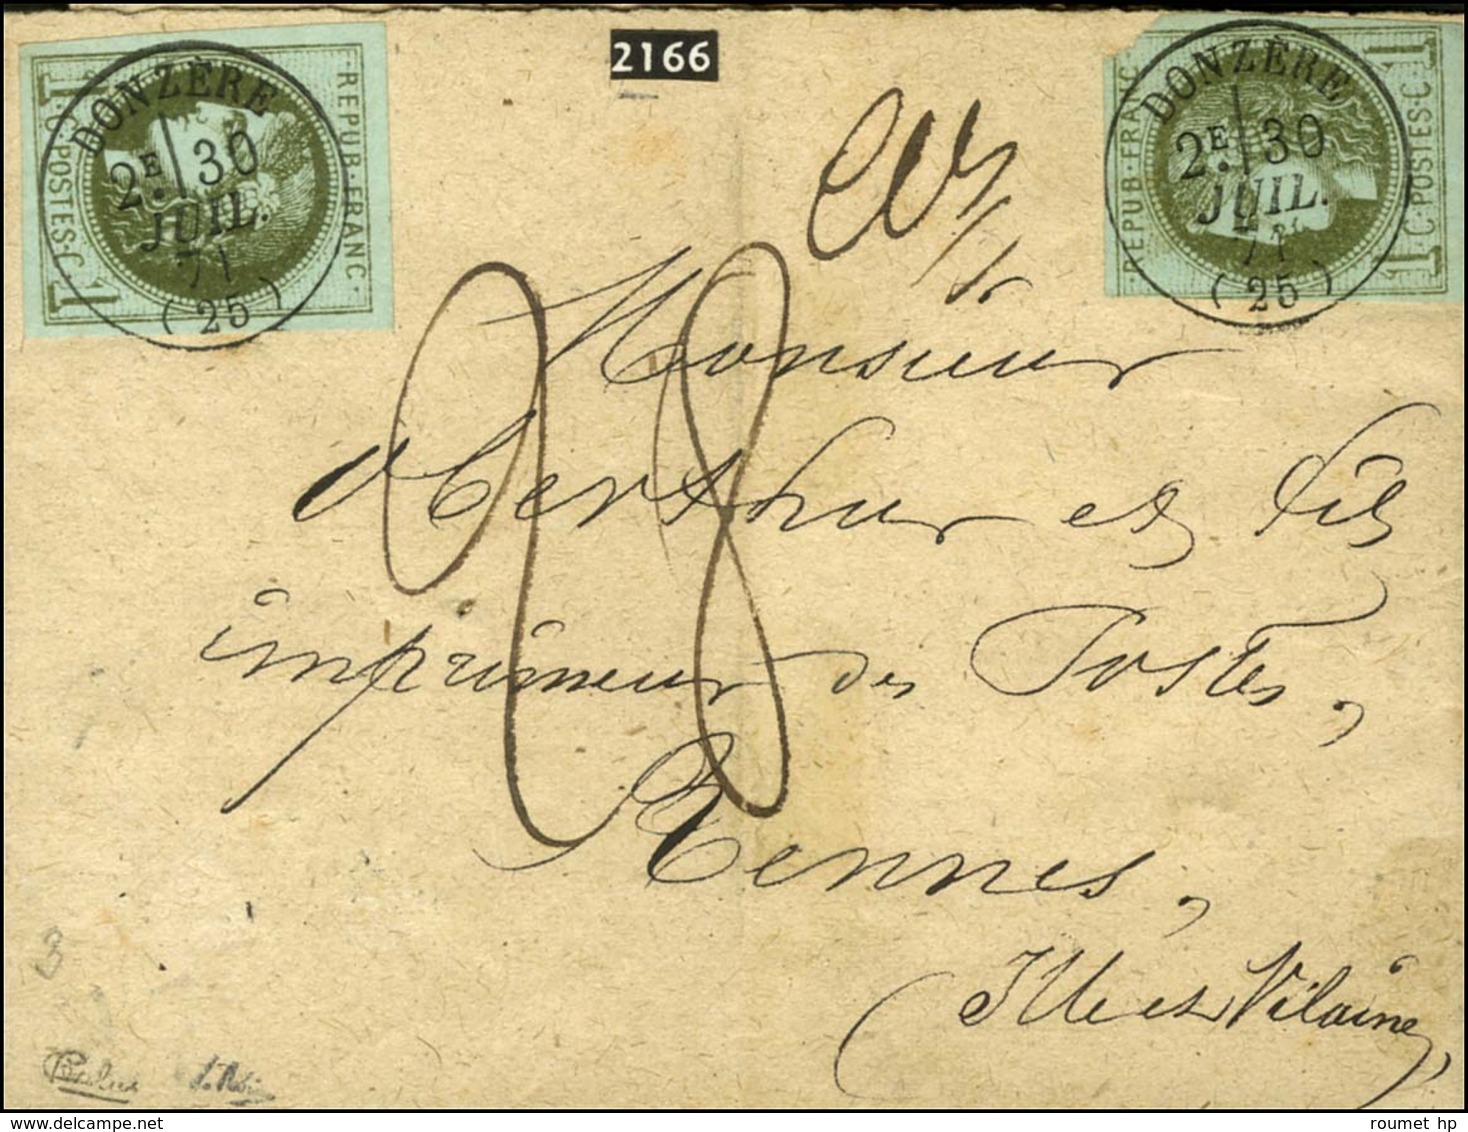 2166
1 C. POSTES. C 1
REPUB. FRANC.
DONZÈRE
2E 30
JUIL.
71
(25)
1 C. POSTES. C 1
REPUB. FRANC.
DONZÈRE
2E. 30
JUIL.
71
(25)
28
Monsieur
Oberthur et fils
imprimeur des Postes,
Rennes,
Ille et Vilaine,
3
roumet hp